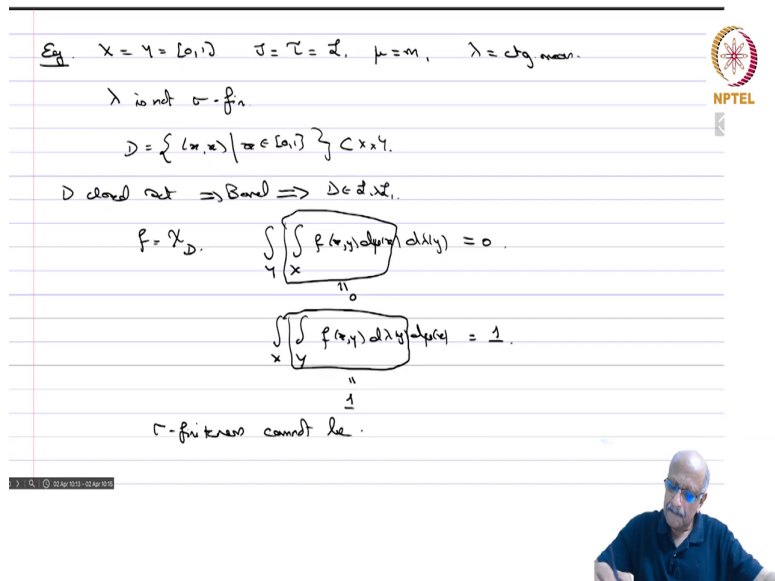 Eg. X = Y = [0,1] S = τ = L₁ μ = m₁ λ = ctg meas.
λ is not σ-fin.
D = { (x,x) | x ∈ [0,1] } ⊂ X × Y.
D closed set ⇒ Borel ⇒ D ∈ L₁×L₁.
f = χ_D. ∫_Y ( ∫_X f(x,y) dμ(x) ) dλ(y) = 0.
"
0
∫_X ( ∫_Y f(x,y) dλ(y) ) dμ(x) = 1.
"
1
σ-finiteness cannot be.
NPTEL
02 Apr 10:13 – 02 Apr 10:15